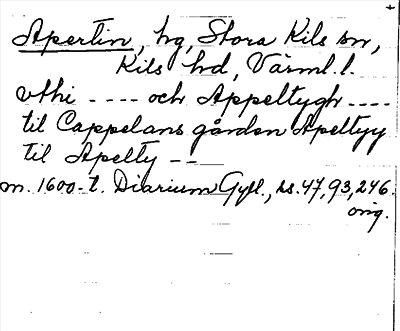 Apertin, hg, Stora Kils sn,
Kils hd, Värml. l.
vthi ---- och Appeltygh ----
til Cappelans gården Apeltyy
til Apelty --
m. 1600-t. Diarium Gyll., ss. 47, 93, 246.
orig.